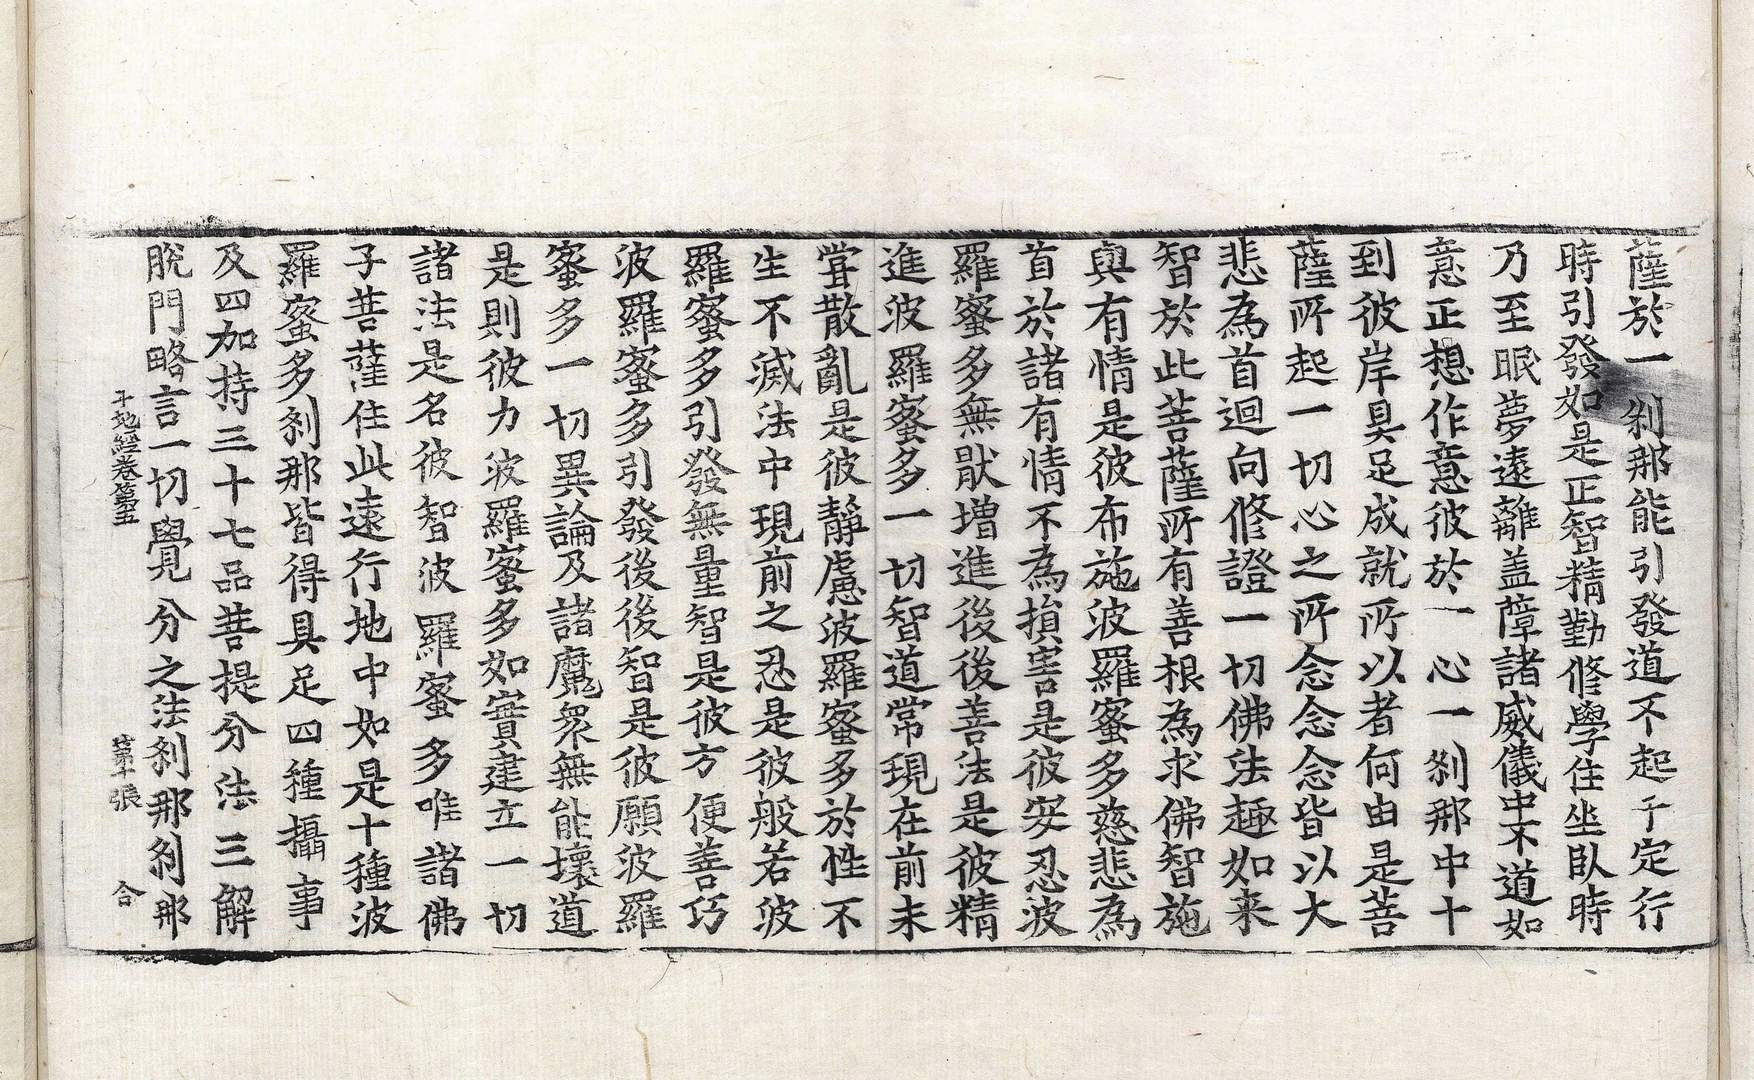 薩於一刹那能引發道不起于定行
時引發如是正智精勤修學住坐臥時
乃至眠夢遠離盖障諸威儀中不道如
意正想作意彼於一心一刹那中十
到彼岸具足成就所以者何由是菩
薩所起一切心之所念念念皆以大
悲為首迴向修證一切佛法趣如来
智於此菩薩所有善根為求佛智施
與有情是彼布施波羅蜜多慈悲為
首於諸有情不為損害是彼安忍波
羅蜜多無猒增進後後善法是彼精
進波羅蜜多一切智道常現在前未
甞散亂是彼靜慮波羅蜜多於性不
生不滅法中現前之忍是彼般若波
羅蜜多引發無量智是彼方便善巧
波羅蜜多引發後後智是彼願波羅
蜜多一切異論及諸魔衆無能壞道
是則彼力波羅蜜多如實建立一切
諸法是名彼智波羅蜜多唯諸佛
子菩薩住此遠行地中如是十種波
羅蜜多刹那皆得具足四種攝事
及四加持三十七品菩提分法三解
脫門略言一切覺分之法刹那刹那
十地經卷第五 第十張 合